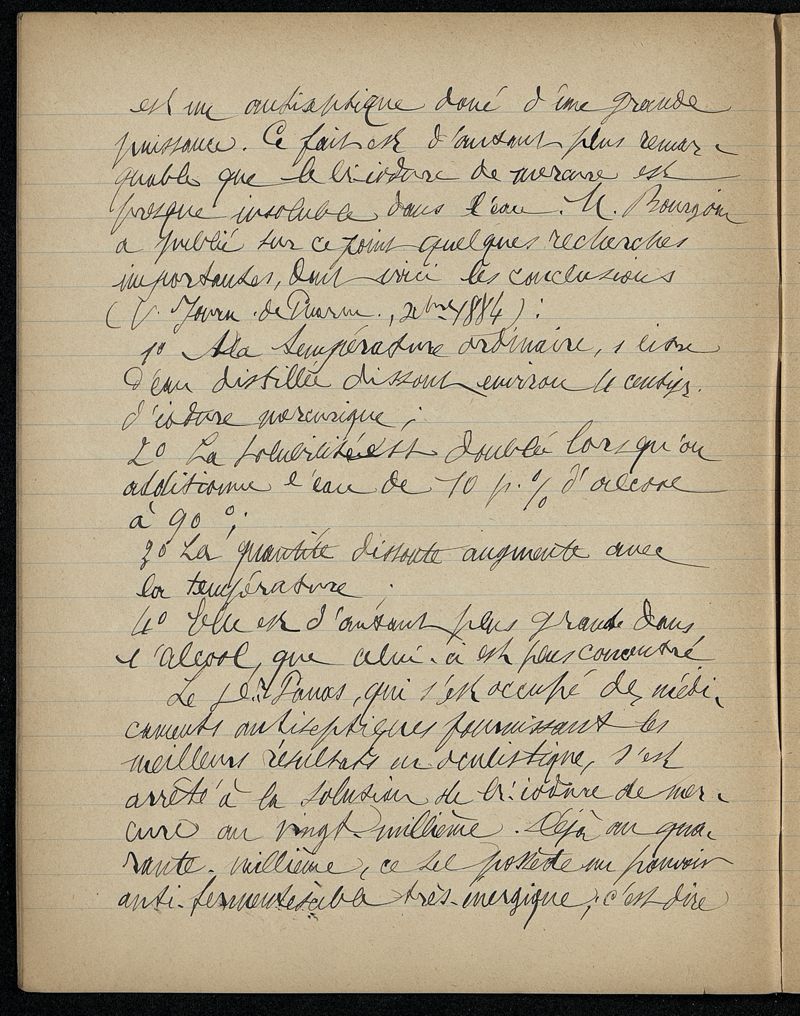 est un antiseptique doué d'une grande
puissance. Ce fait est d'autant plus remar-
quable que le bi-iodure de mercure est
presque insoluble dans l'eau. M. Bourgoin
a publié sur ce point quelques recherches
importantes, dont voici les conclusions
(V. Journ. de Pharm., 1884) :
1° A la température ordinaire, 1 litre
d'eau distillée dissout environ 4 centigr.
d'iodure mercurique ;
2° La solubilité est doublée lorsqu'on
additionne l'eau de 10 p. % d'alcool
à 90° ;
3° La quantité dissoute augmente avec
la température ;
4° Elle est d'autant plus grande dans
l'alcool, que celui-ci est plus concentré
Le Panas, qui s'est occupé des médi-
caments antiseptiques fournissant les
meilleurs résultats en oculistique, s'est
arrêté à la solution de bi-iodure de mer-
cure au vingt-millième. Déjà au qua-
rante-millième, ce sel possède un pouvoir
anti-fermentescible très-énergique ; c'est dire